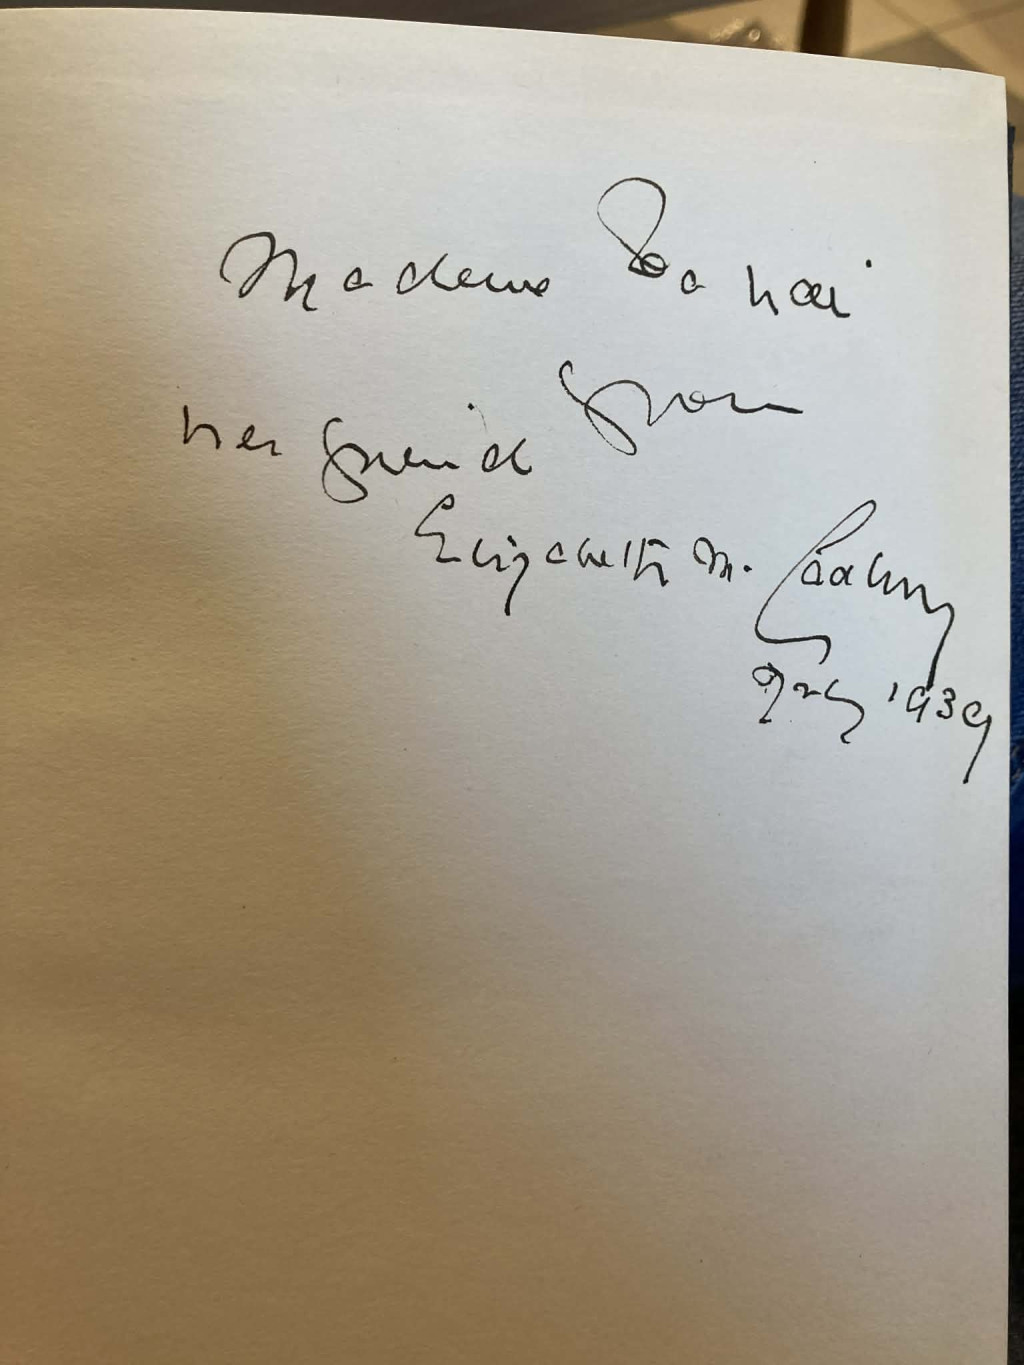 Madame Sahai
from
her friend
Elizabeth M. Cadbury
July 1939